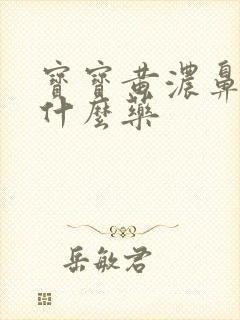 寶寶黄濃鼻
什麼藥
岳敏君